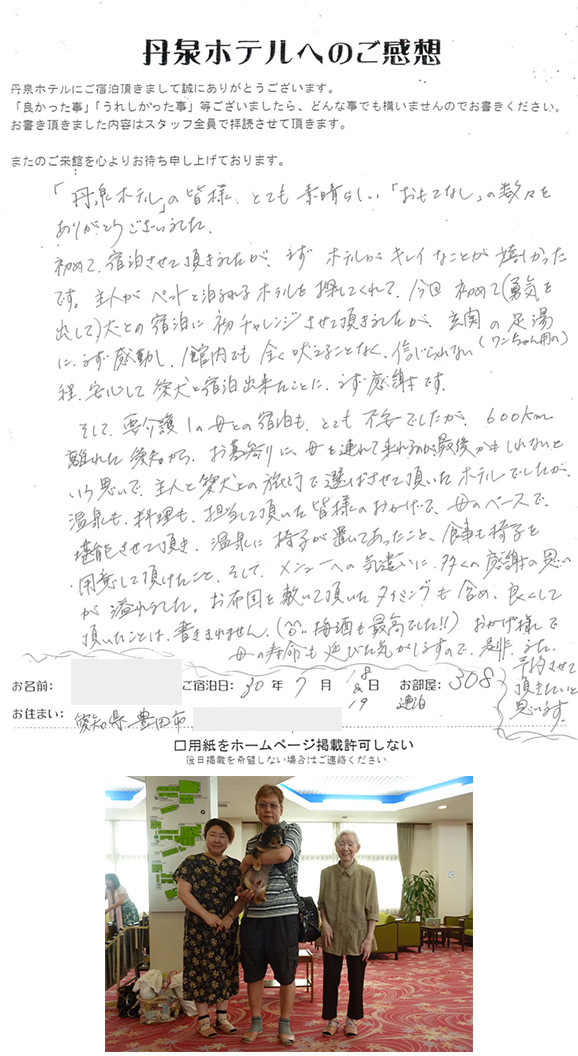 丹泉ホテルへのご感想
丹泉ホテルにご宿泊頂きまして誠にありがとうございます。
「良かった事」「うれしかった事」等ございましたら、どんな事でも構いませんのでお書きください。
お書き頂きました内容はスタッフ全員で拝読させて頂きます。
またのご来館を心よりお待ち申し上げております。
「丹泉ホテル」の皆様、とても素晴らしい「おもてなし」の数々を
ありがとうございました。
初めて、宿泊させて頂きましたが、まず ホテルがキレイなことが 嬉しかった
です。主人が ペットと泊まれるホテルを探してくれて、今回 初めて(勇気を
出して)犬との宿泊に初チャレンジさせて頂きましたが、玄関の足湯
(ワンちゃん用の)
に、まず感動し、館内でも 全く吠えることなく、信じられない
程、安心して愛犬と宿泊出来たことに、まず感謝です。
そして、要介護1の母との宿泊も、とても 不安でしたが、600km
離れた愛知から、お墓参りに、母を連れて来れるのが最後かもしれないと
いう思いで、主人と愛犬との旅行で選ばせて頂いたホテルでしたが、
温泉も、料理も、担当して頂いた皆様のおかげで、母のペースで、
堪能させて頂き、温泉に椅子が置いてあったこと、食事も椅子を
用意して頂けたこと、そして、メニューへの気遣いに、多くの感謝の思い
が溢れました。お布団を敷いて頂いたタイミングも含め、良くして
頂いたことは、書ききれません。(梅酒も最高でした!!) おかげ様で
母の寿命も延びた気がしますので、是非、また、
予約させて
頂きたいと
思います。
お名前:
ご宿泊日: 30 年 7 月 18 & 19 日 お部屋: 308
連泊
お住まい: 愛知県豊田市
□用紙をホームページ掲載許可しない
後日掲載を希望しない場合はご連絡ください